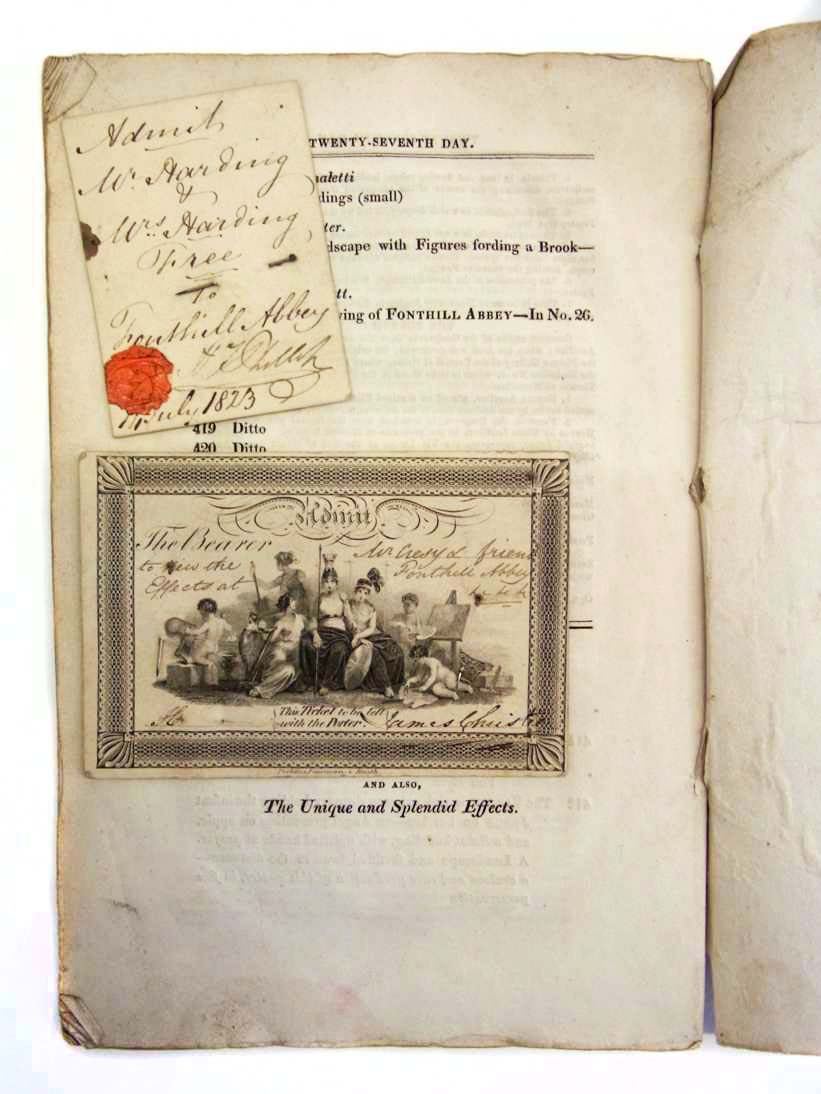 Admit
Mr. Harding
&
Mrs. Harding
Free
To
Fonthill Abbey
July 1823
TWENTY-SEVENTH DAY.
naletti
dings (small)
ter.
dscape with Figures fording a Brook—
tt.
ving of FONTHILL ABBEY—In No. 26.
419 Ditto
420 Ditto
Admit
The Bearer
to view the
Effects at
Mr Cresy & friend
Fonthill Abbey
This Ticket to be left
with the Porter.
James Christie
AND ALSO,
The Unique and Splendid Effects.